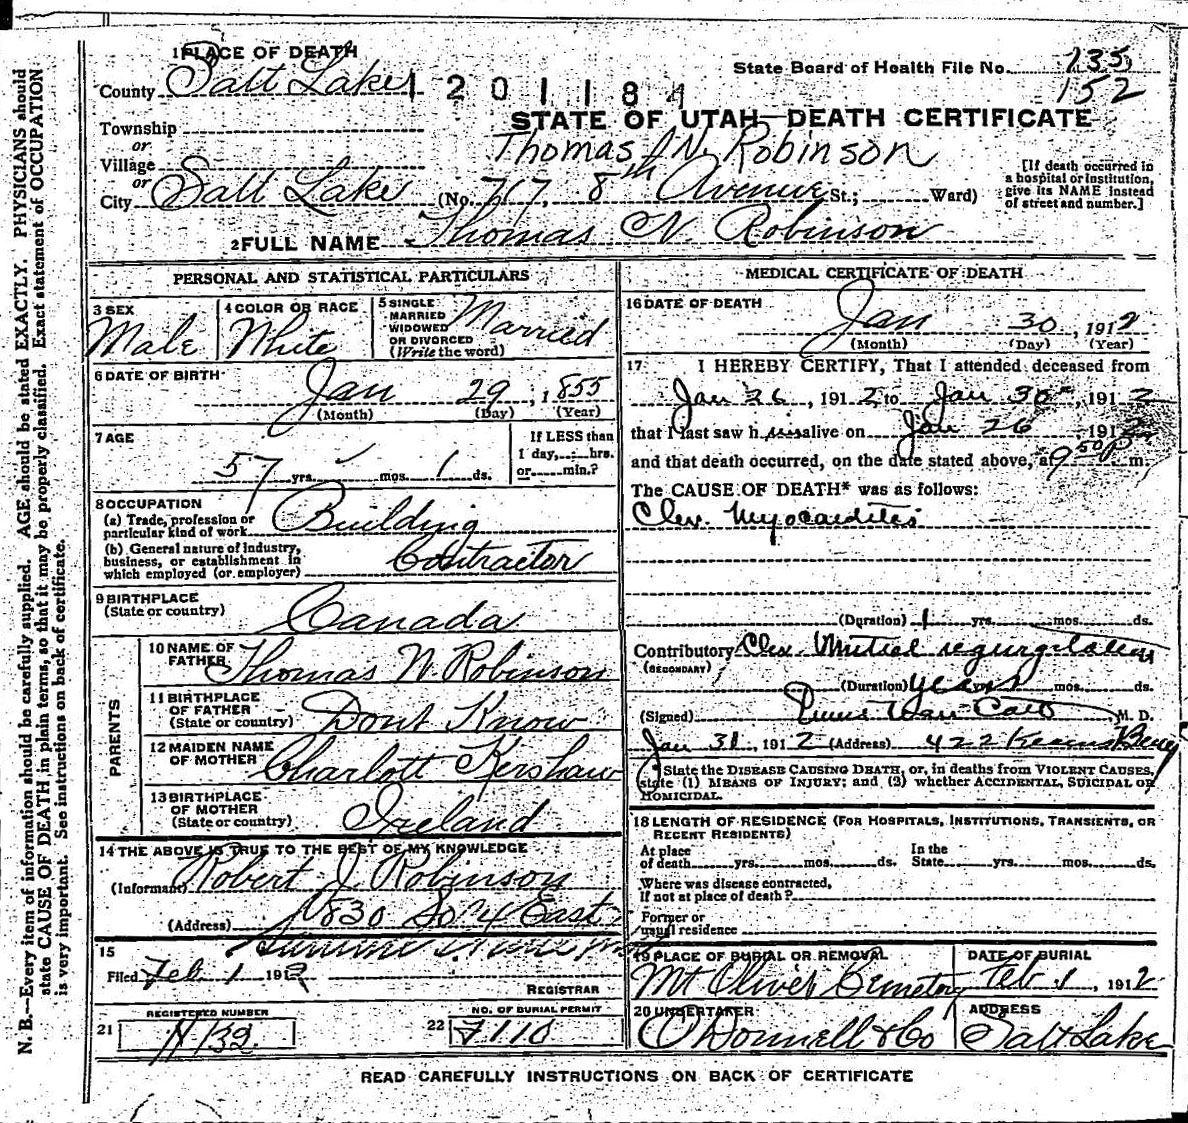 N. B.—Every item of information should be carefully supplied. AGE should be stated EXACTLY. PHYSICIANS should
state CAUSE OF DEATH in plain terms, so that it may be properly classified. Exact statement of OCCUPATION
is very important. See instructions on back of certificate.
1 PLACE OF DEATH
County Salt Lake
1201184
State Board of Health File No. 135
152
STATE OF UTAH—DEATH CERTIFICATE
Township
or
Village
or
Thomas N. Robinson
City Salt Lake (No. 767, 8th Avenue St.; Ward)
[If death occurred in
a hospital or institution,
give its NAME instead
of street and number.]
2 FULL NAME Thomas N. Robinson
PERSONAL AND STATISTICAL PARTICULARS
3 SEX
Male
4 COLOR OR RACE
White
5 SINGLE
MARRIED
WIDOWED
OR DIVORCED
(Write the word)
Married
6 DATE OF BIRTH
Jan 29, 1855
(Month) (Day) (Year)
7 AGE
57 yrs. mos. 1 ds.
If LESS than
1 day, hrs.
or min.?
8 OCCUPATION
(a) Trade, profession or
particular kind of work Building
(b) General nature of industry,
business, or establishment in
which employed (or employer) Contractor
9 BIRTHPLACE
(State or country) Canada
PARENTS
10 NAME OF
FATHER Thomas N. Robinson
11 BIRTHPLACE
OF FATHER
(State or country) Dont Know
12 MAIDEN NAME
OF MOTHER Charlott Kershaw
13 BIRTHPLACE
OF MOTHER
(State or country) Ireland
14 THE ABOVE IS TRUE TO THE BEST OF MY KNOWLEDGE
(Informant) Robert J. Robinson
(Address) 1830 So 4 East
15
Filed Feb 1 191
REGISTRAR
21 REGISTERED NUMBER
132
22 NO. OF BURIAL PERMIT
7110
MEDICAL CERTIFICATE OF DEATH
16 DATE OF DEATH
Jan 30, 1912
(Month) (Day) (Year)
17 I HEREBY CERTIFY, That I attended deceased from
Jan 26, 1912 to Jan 30, 1912
that I last saw him alive on Jan 26 1912
and that death occurred, on the date stated above, at 9 50 P m.
The CAUSE OF DEATH* was as follows:
Myocarditis
(Duration) 1 yrs. mos. ds.
Contributory Mitral regurgitation
(SECONDARY)
(Duration) years mos. ds.
(Signed) M. D.
Jan 31, 1912 (Address) 422 Kearns Bldg
*State the DISEASE CAUSING DEATH, or, in deaths from VIOLENT CAUSES,
state (1) MEANS OF INJURY; and (2) whether ACCIDENTAL, SUICIDAL or
HOMICIDAL.
18 LENGTH OF RESIDENCE (FOR HOSPITALS, INSTITUTIONS, TRANSIENTS, OR
RECENT RESIDENTS)
At place
of death yrs. mos. ds.
In the
State yrs. mos. ds.
Where was disease contracted,
if not at place of death?
Former or
usual residence
19 PLACE OF BURIAL OR REMOVAL
Mt Olivet Cemetery
DATE OF BURIAL
Feb 1, 1912
20 UNDERTAKER
O'Donnell & Co
ADDRESS
Salt Lake
READ CAREFULLY INSTRUCTIONS ON BACK OF CERTIFICATE